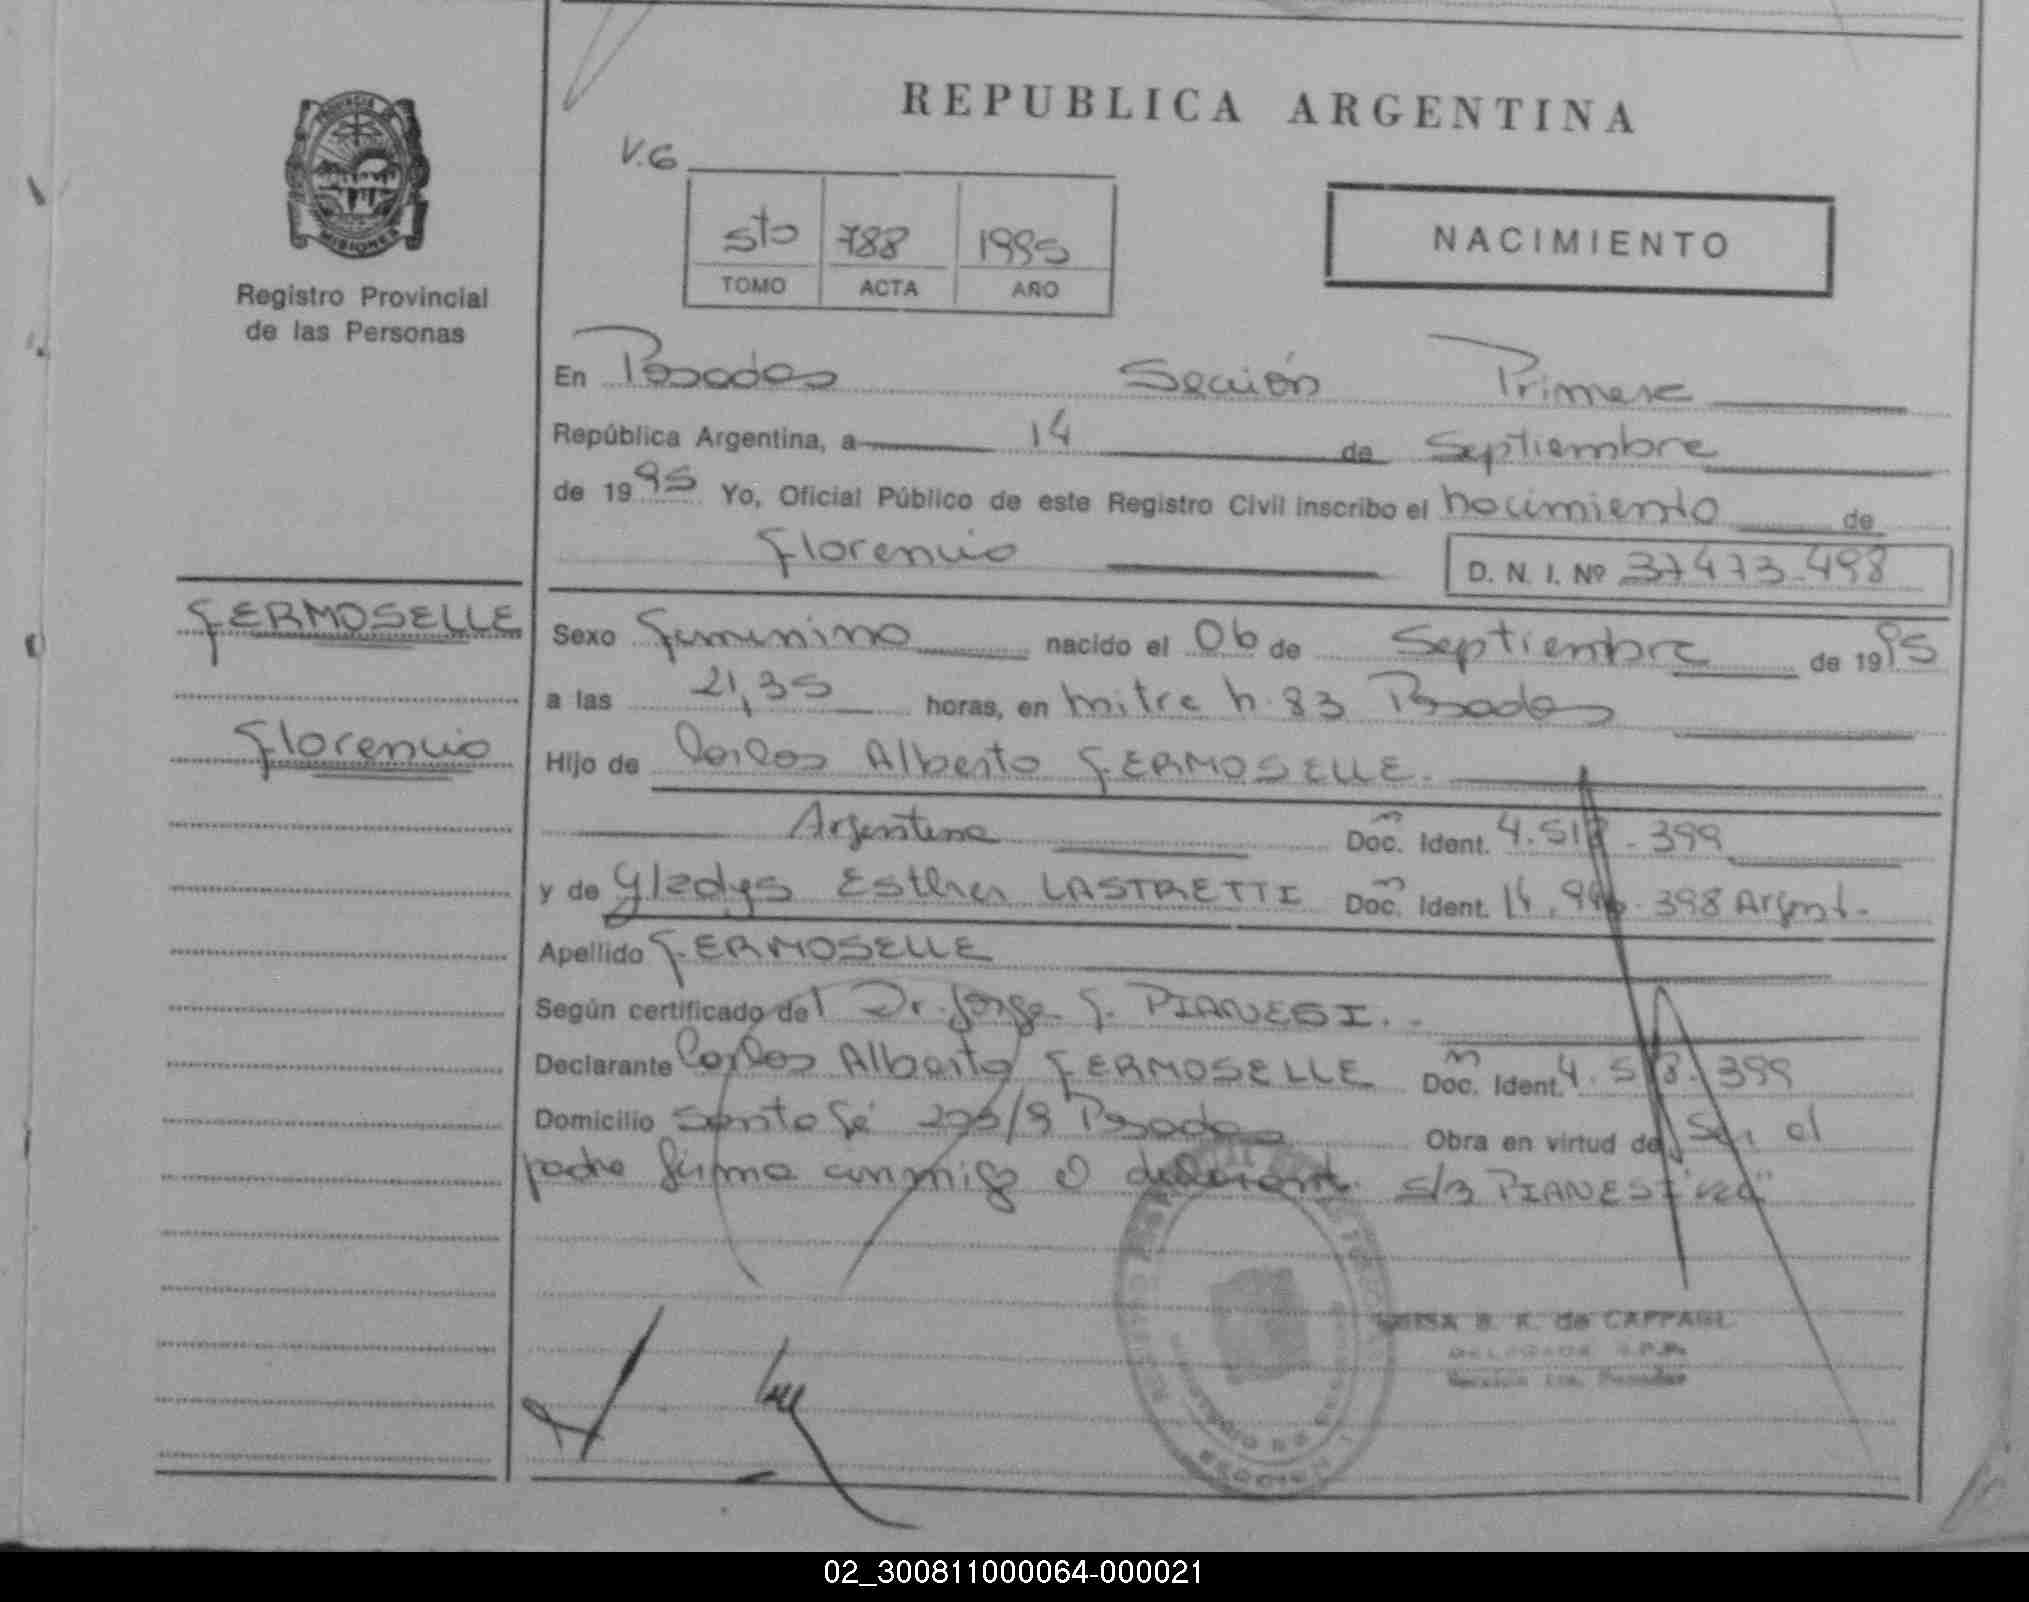 REPUBLICA ARGENTINA
PROVINCIA DE
MISIONES
Registro Provincial
de las Personas
V.G
5to 788 1995
TOMO ACTA AÑO
NACIMIENTO
En Posadas Sección Primera
República Argentina, a 14 de Septiembre
de 1995 Yo, Oficial Público de este Registro Civil inscribo el nacimiento de
Florencia D. N. I. Nº 37473.498
FERMOSELLE
Florencia
Sexo Femenino nacido el 06 de Septiembre de 1995
a las 21,35 horas, en mitre n. 83 Posadas
Hijo de Carlos Alberto FERMOSELLE.
Argentina Doc. Ident. 4.518.399
y de Gladys Esther LASTRETTI Doc. Ident. 398 Argent.
Apellido FERMOSELLE
Según certificado del Dr. Jorge F. PIANESI.
Declarante Carlos Alberto FERMOSELLE Doc. Ident. 4.518.399
Domicilio Santa Fé Posadas Obra en virtud de Ser el
padre firma conmigo el declarante. S/B PIANESI "vale"
B. K. de CAPPAGLI
DELEGADA R.P.P.
Sección 1ra. Posadas
02_300811000064-000021